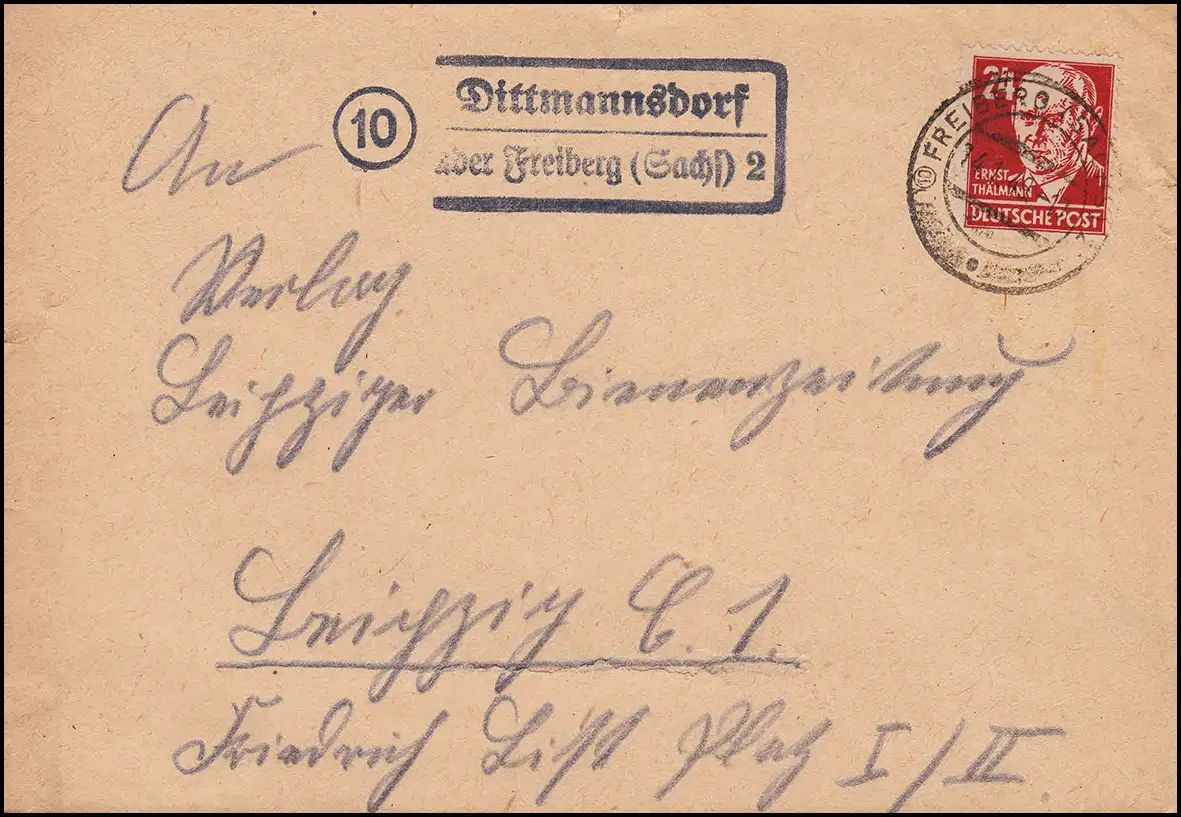 An
10
Dittmannsdorf
über Freiberg (Sachs) 2
24
ERNST
THÄLMANN
DEUTSCHE POST
(10) FREIBERG
Verlag
Leipziger Bienenzeitung
Leipzig C. 1.
Friedrich List Platz I/II.